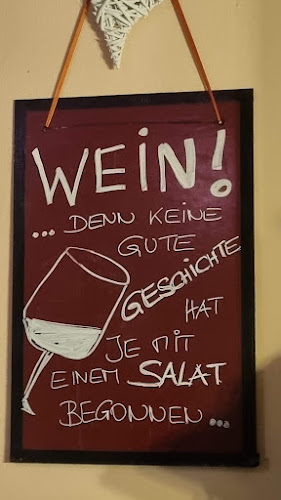 WEIN!
... DENN KEINE
GUTE
GESCHICHTE
HAT
JE MIT
EINEM SALAT
BEGONNEN...